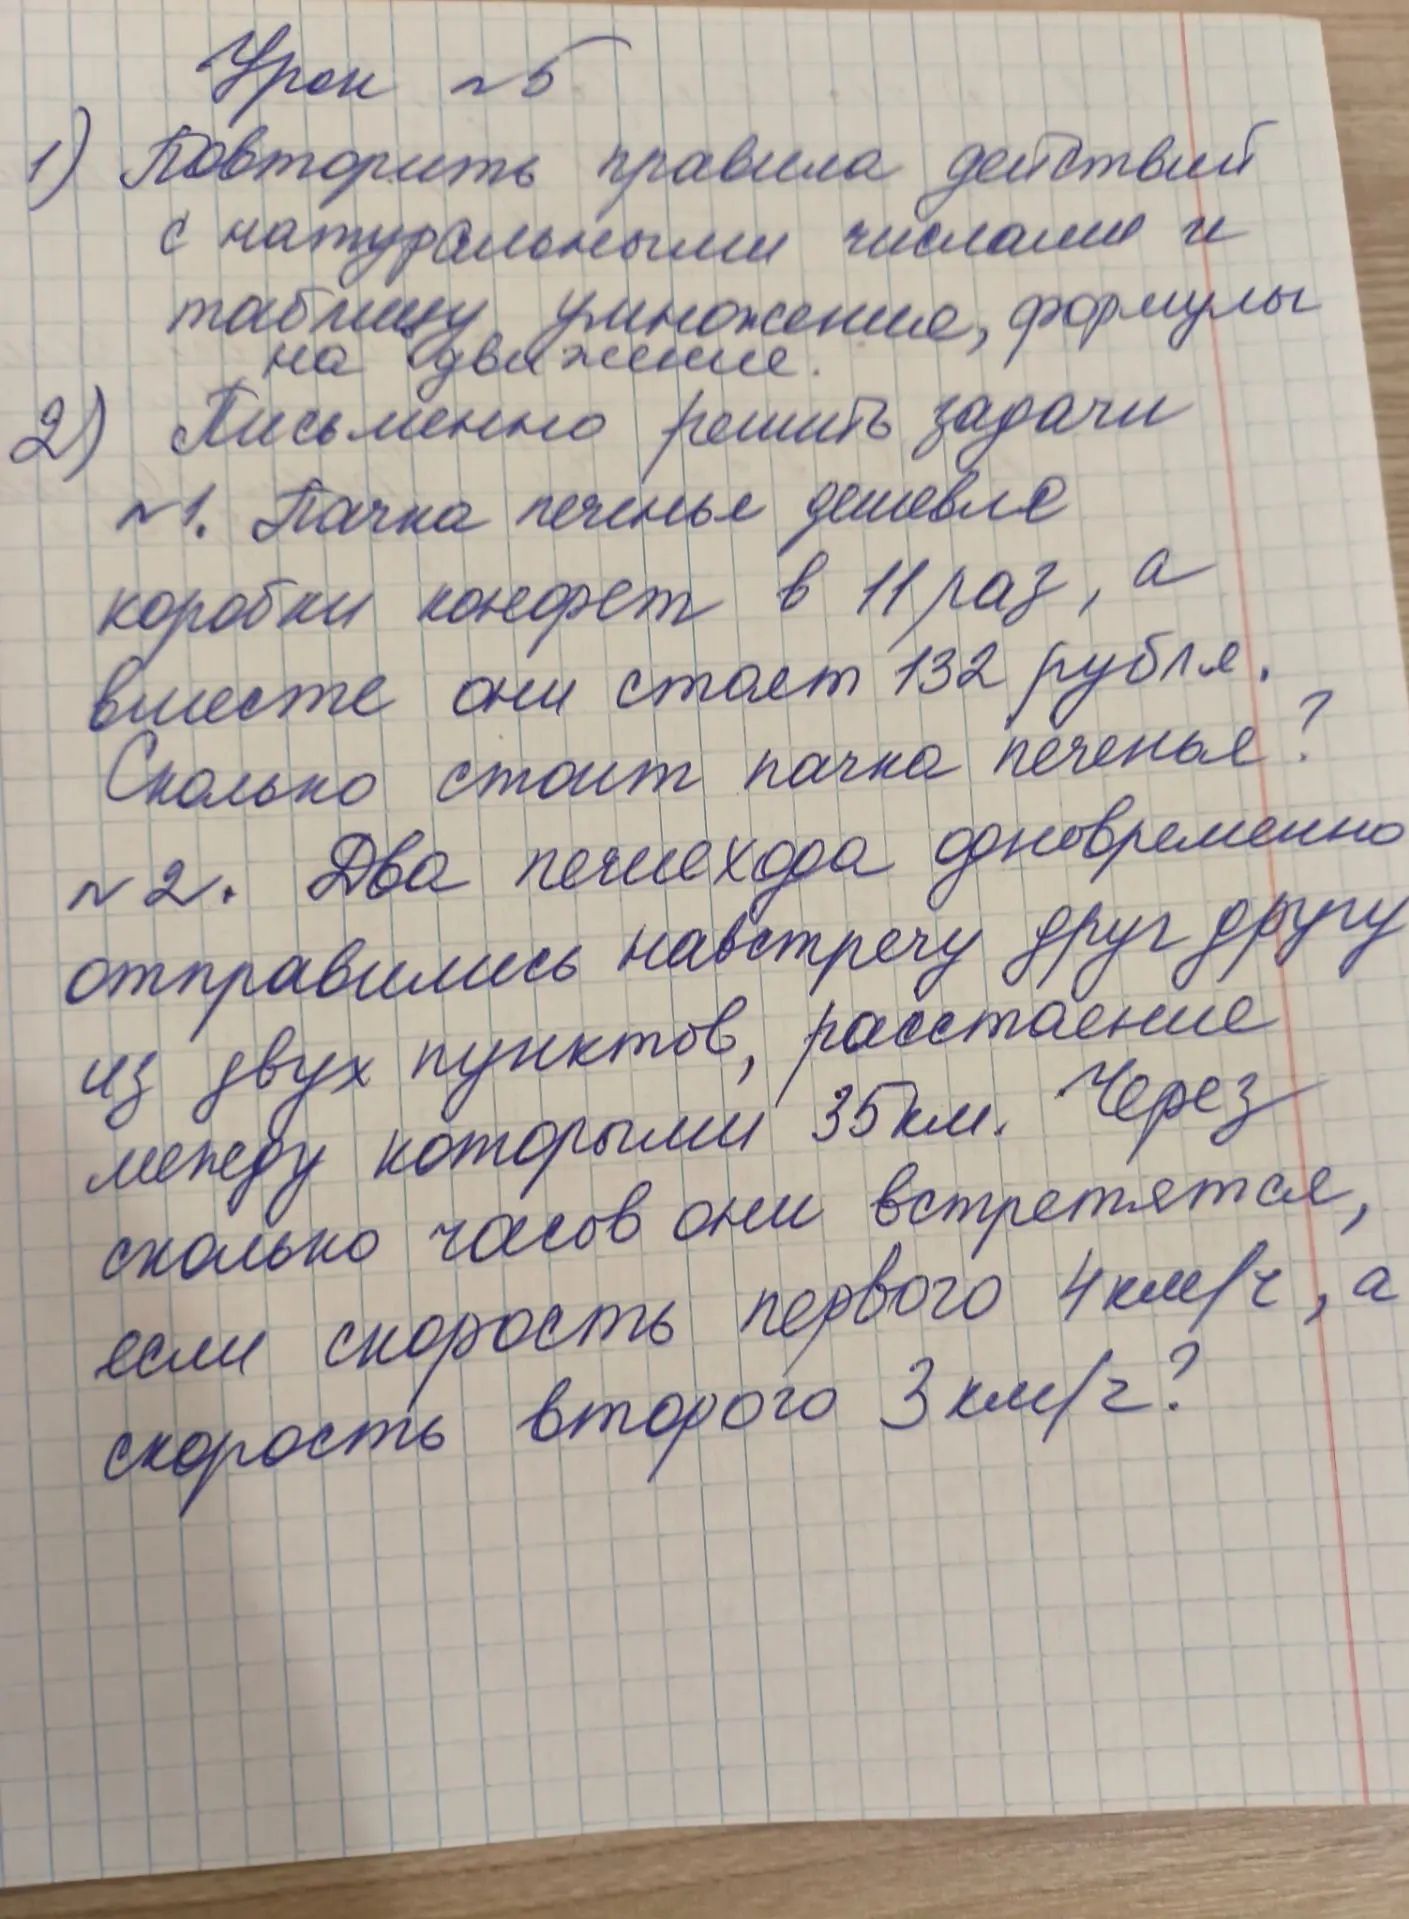 Урок №5
1) Повторить правила действий
с натуральными числами и
таблицу умножения, формулы
на движение.
2) Письменно решить задачи
№1. Пачка печенья дешевле
коробки конфет в 11 раз, а
вместе они стоят 132 рубля.
Сколько стоит пачка печенья?
№2. Два пешехода одновременно
отправились навстречу друг другу
из двух пунктов, расстояние
между которыми 35 км. Через
сколько часов они встретятся,
если скорость первого 4 км/ч, а
скорость второго 3 км/ч?